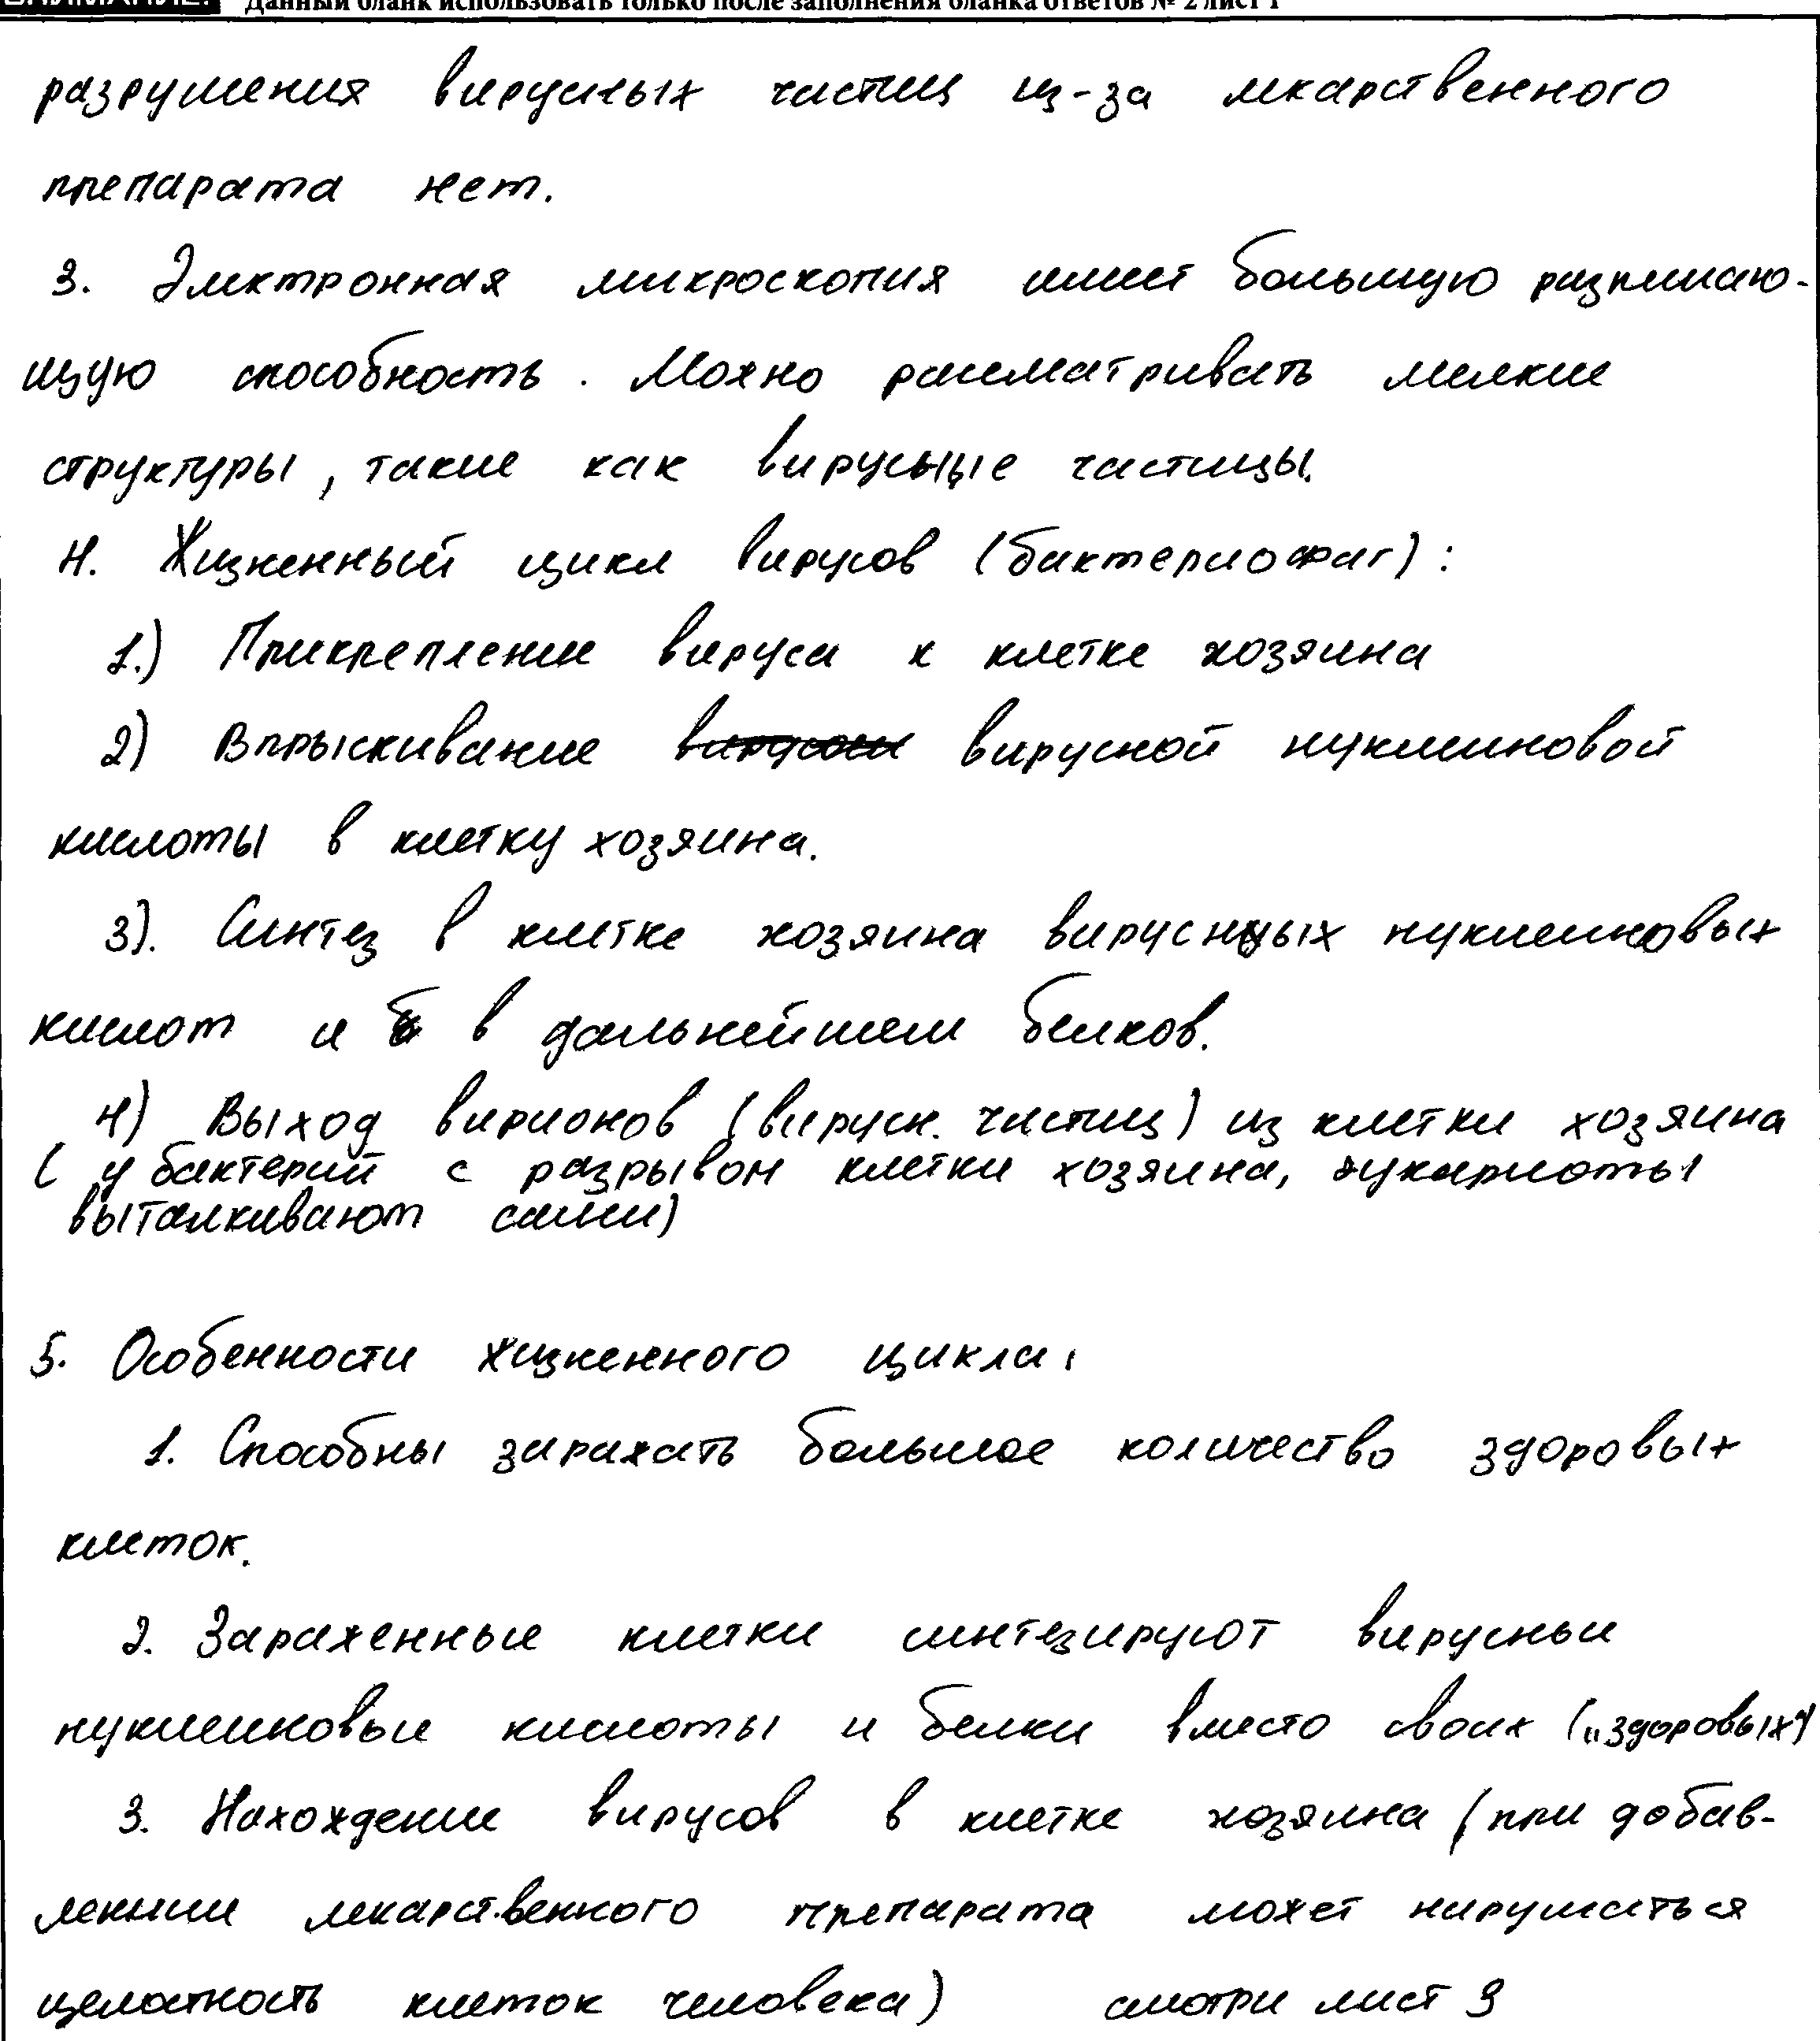 ВНИМАНИЕ! Данный бланк использовать только после заполнения бланка ответов № 2 лист 1
разрушения вирусных частиц из-за лекарственного
препарата нет.
3. Электронная микроскопия имеет большую разрешаю-
щую способность. Можно рассматривать мелкие
структуры, такие как вирусные частицы.
4. Жизненный цикл вирусов (бактериофаг):
1.) Прикрепление вируса к клетке хозяина
2) Впрыскивание вирусной нуклеиновой
кислоты в клетку хозяина.
3). Синтез в клетке хозяина вирусных нуклеиновых
кислот и в дальнейшем белков.
4) Выход вирионов (вирусн. частиц) из клетки хозяина
( у бактерий с разрывом клетки хозяина, эукариоты
выталкивают сами)
5. Особенности жизненного цикла:
1. Способны заражать большое количество здоровых
клеток.
2. Зараженные клетки синтезируют вирусные
нуклеиновые кислоты и белки вместо своих („здоровых“)
3. Нахождение вирусов в клетке хозяина (при добав-
лении лекарственного препарата может нарушаться
целостность клеток человека) смотри лист 3